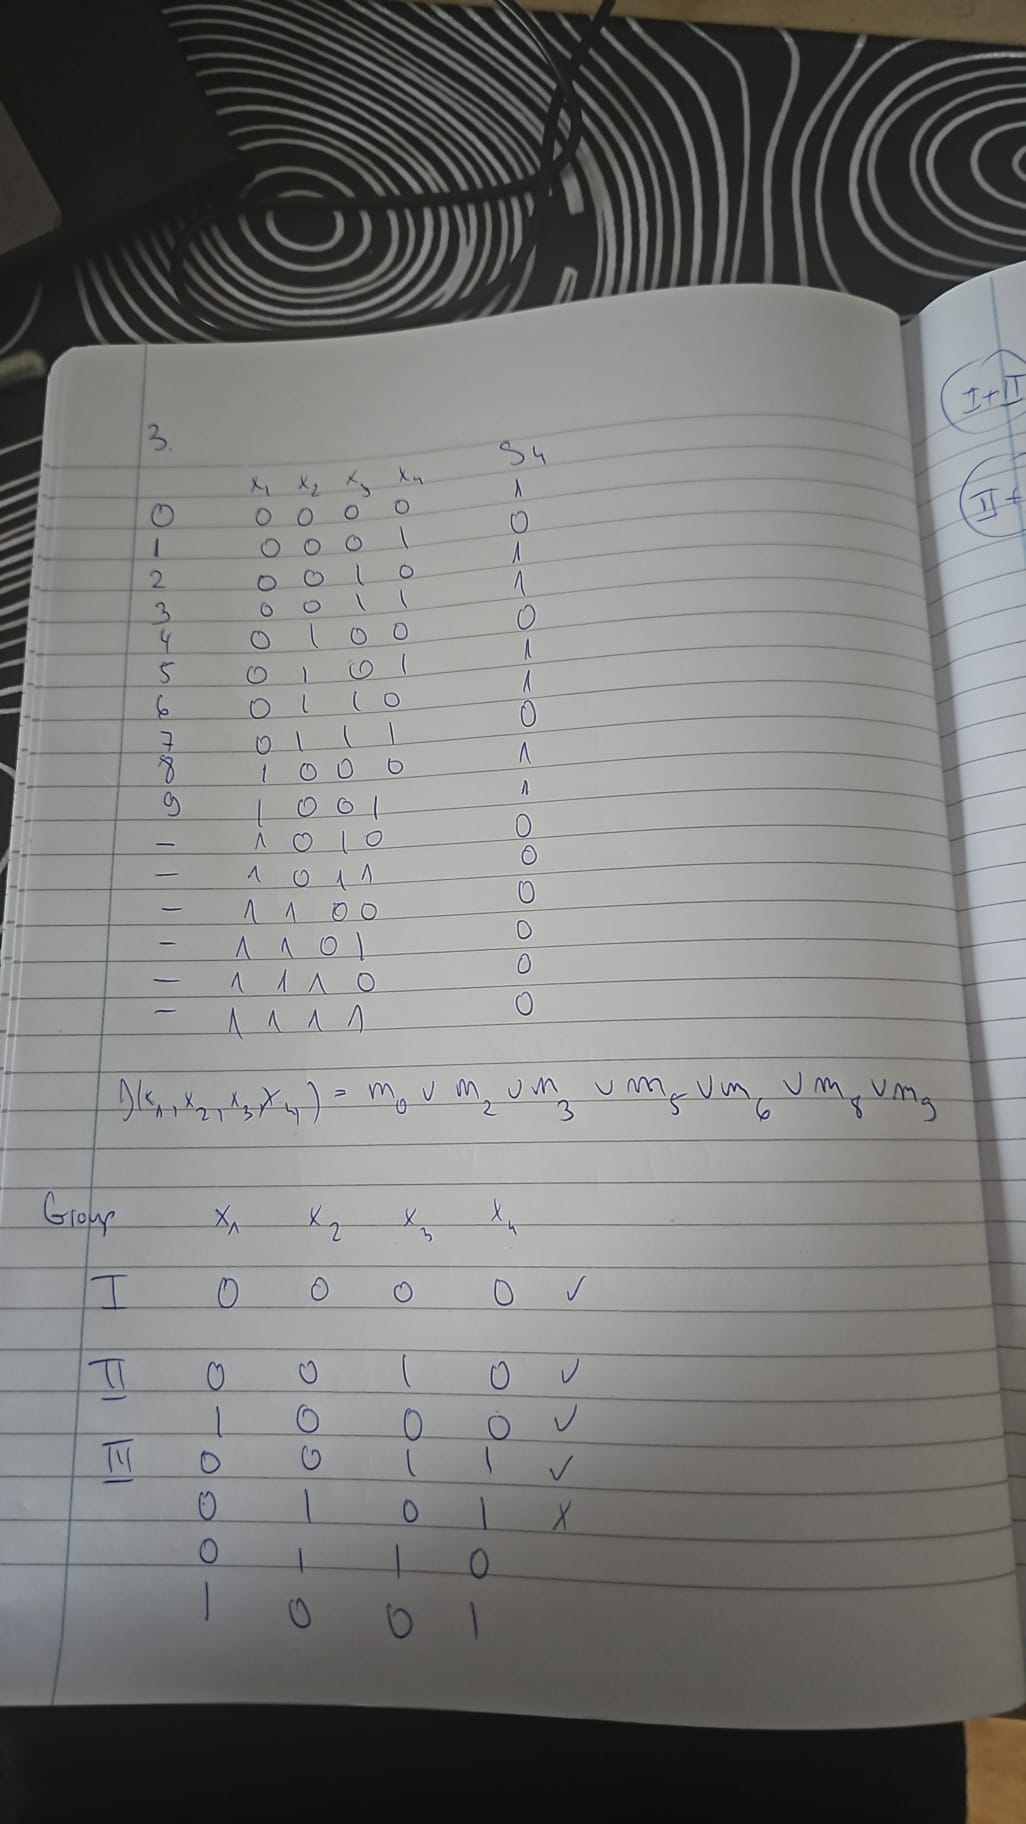 3.
x1 x2 x3 x4 S4
0 0 0 0 0 1
1 0 0 0 1 0
2 0 0 1 0 1
3 0 0 1 1 1
4 0 1 0 0 0
5 0 1 0 1 1
6 0 1 1 0 1
7 0 1 1 1 0
8 1 0 0 0 1
9 1 0 0 1 1
– 1 0 1 0 0
– 1 0 1 1 0
– 1 1 0 0 0
– 1 1 0 1 0
– 1 1 1 0 0
– 1 1 1 1 0
(x1, x2, x3, x4) = m0 ∨ m2 ∨ m3 ∨ m5 ∨ m6 ∨ m8 ∨ m9
Group x1 x2 x3 x4
I 0 0 0 0 ✓
II 0 0 1 0 ✓
1 0 0 0 ✓
III 0 0 1 1 ✓
0 1 0 1 x
0 1 1 0
1 0 0 1
I+II
II+